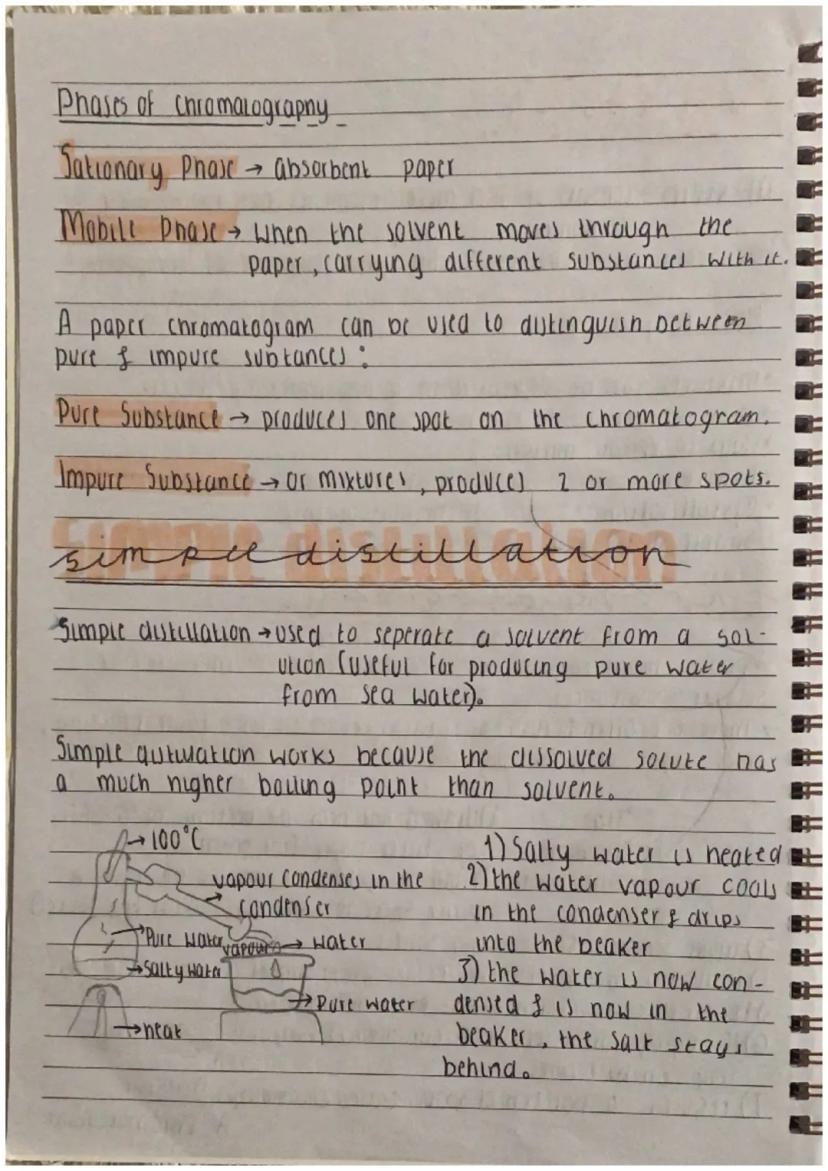 Phases of chromatography
Sationary Phase → absorbent paper
Mobile Phase → when the solvent moves through the
paper, carrying different substances with it.
A paper chromatogram can be used to distinguish between
pure & impure subtances:
Pure Substance → produces one spot on the chromatogram.
Impure Substance → or mixtures, produces 2 or more spots.
simple distillation
Simple distillation → used to seperate a solvent from a sol-
ution (useful for producing pure water
from sea water).
Simple distillation works because the dissolved solute has
a much higher boiling point than solvent.
→ 100°C
vapour condenses in the
condenser
→ Pure water vapour
→ water
→ salty water
→ pure water
→ heat
1) Salty water is heated
2) the water vapour cools
in the condenser & drips
into the beaker
3) the water is now con-
densed & is now in the
beaker, the salt stays
behind.